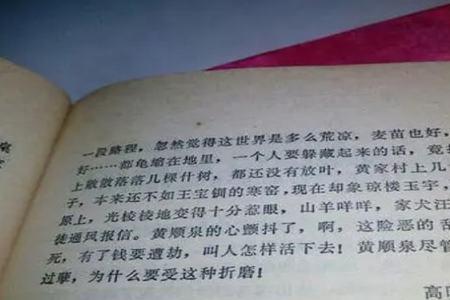 一段路程，忽然觉得这世界是多么荒凉，麦苗也好，
好……都龟缩在地里，一个人要躲藏起来的话，竟
上散散落落几棵什树，都还没有放叶，黄家村上几
子，本来还不如王宝钏的寒窑，现在却象琼楼玉宇，
原上，光棱棱地变得十分惹眼，山羊咩咩，家犬汪
徒通风报信。黄顺泉的心颤抖了，啊，这险恶的
死，有了钱要遭劫，叫人怎样活下去！黄顺泉尽管
过孽，为什么要受这种折磨！